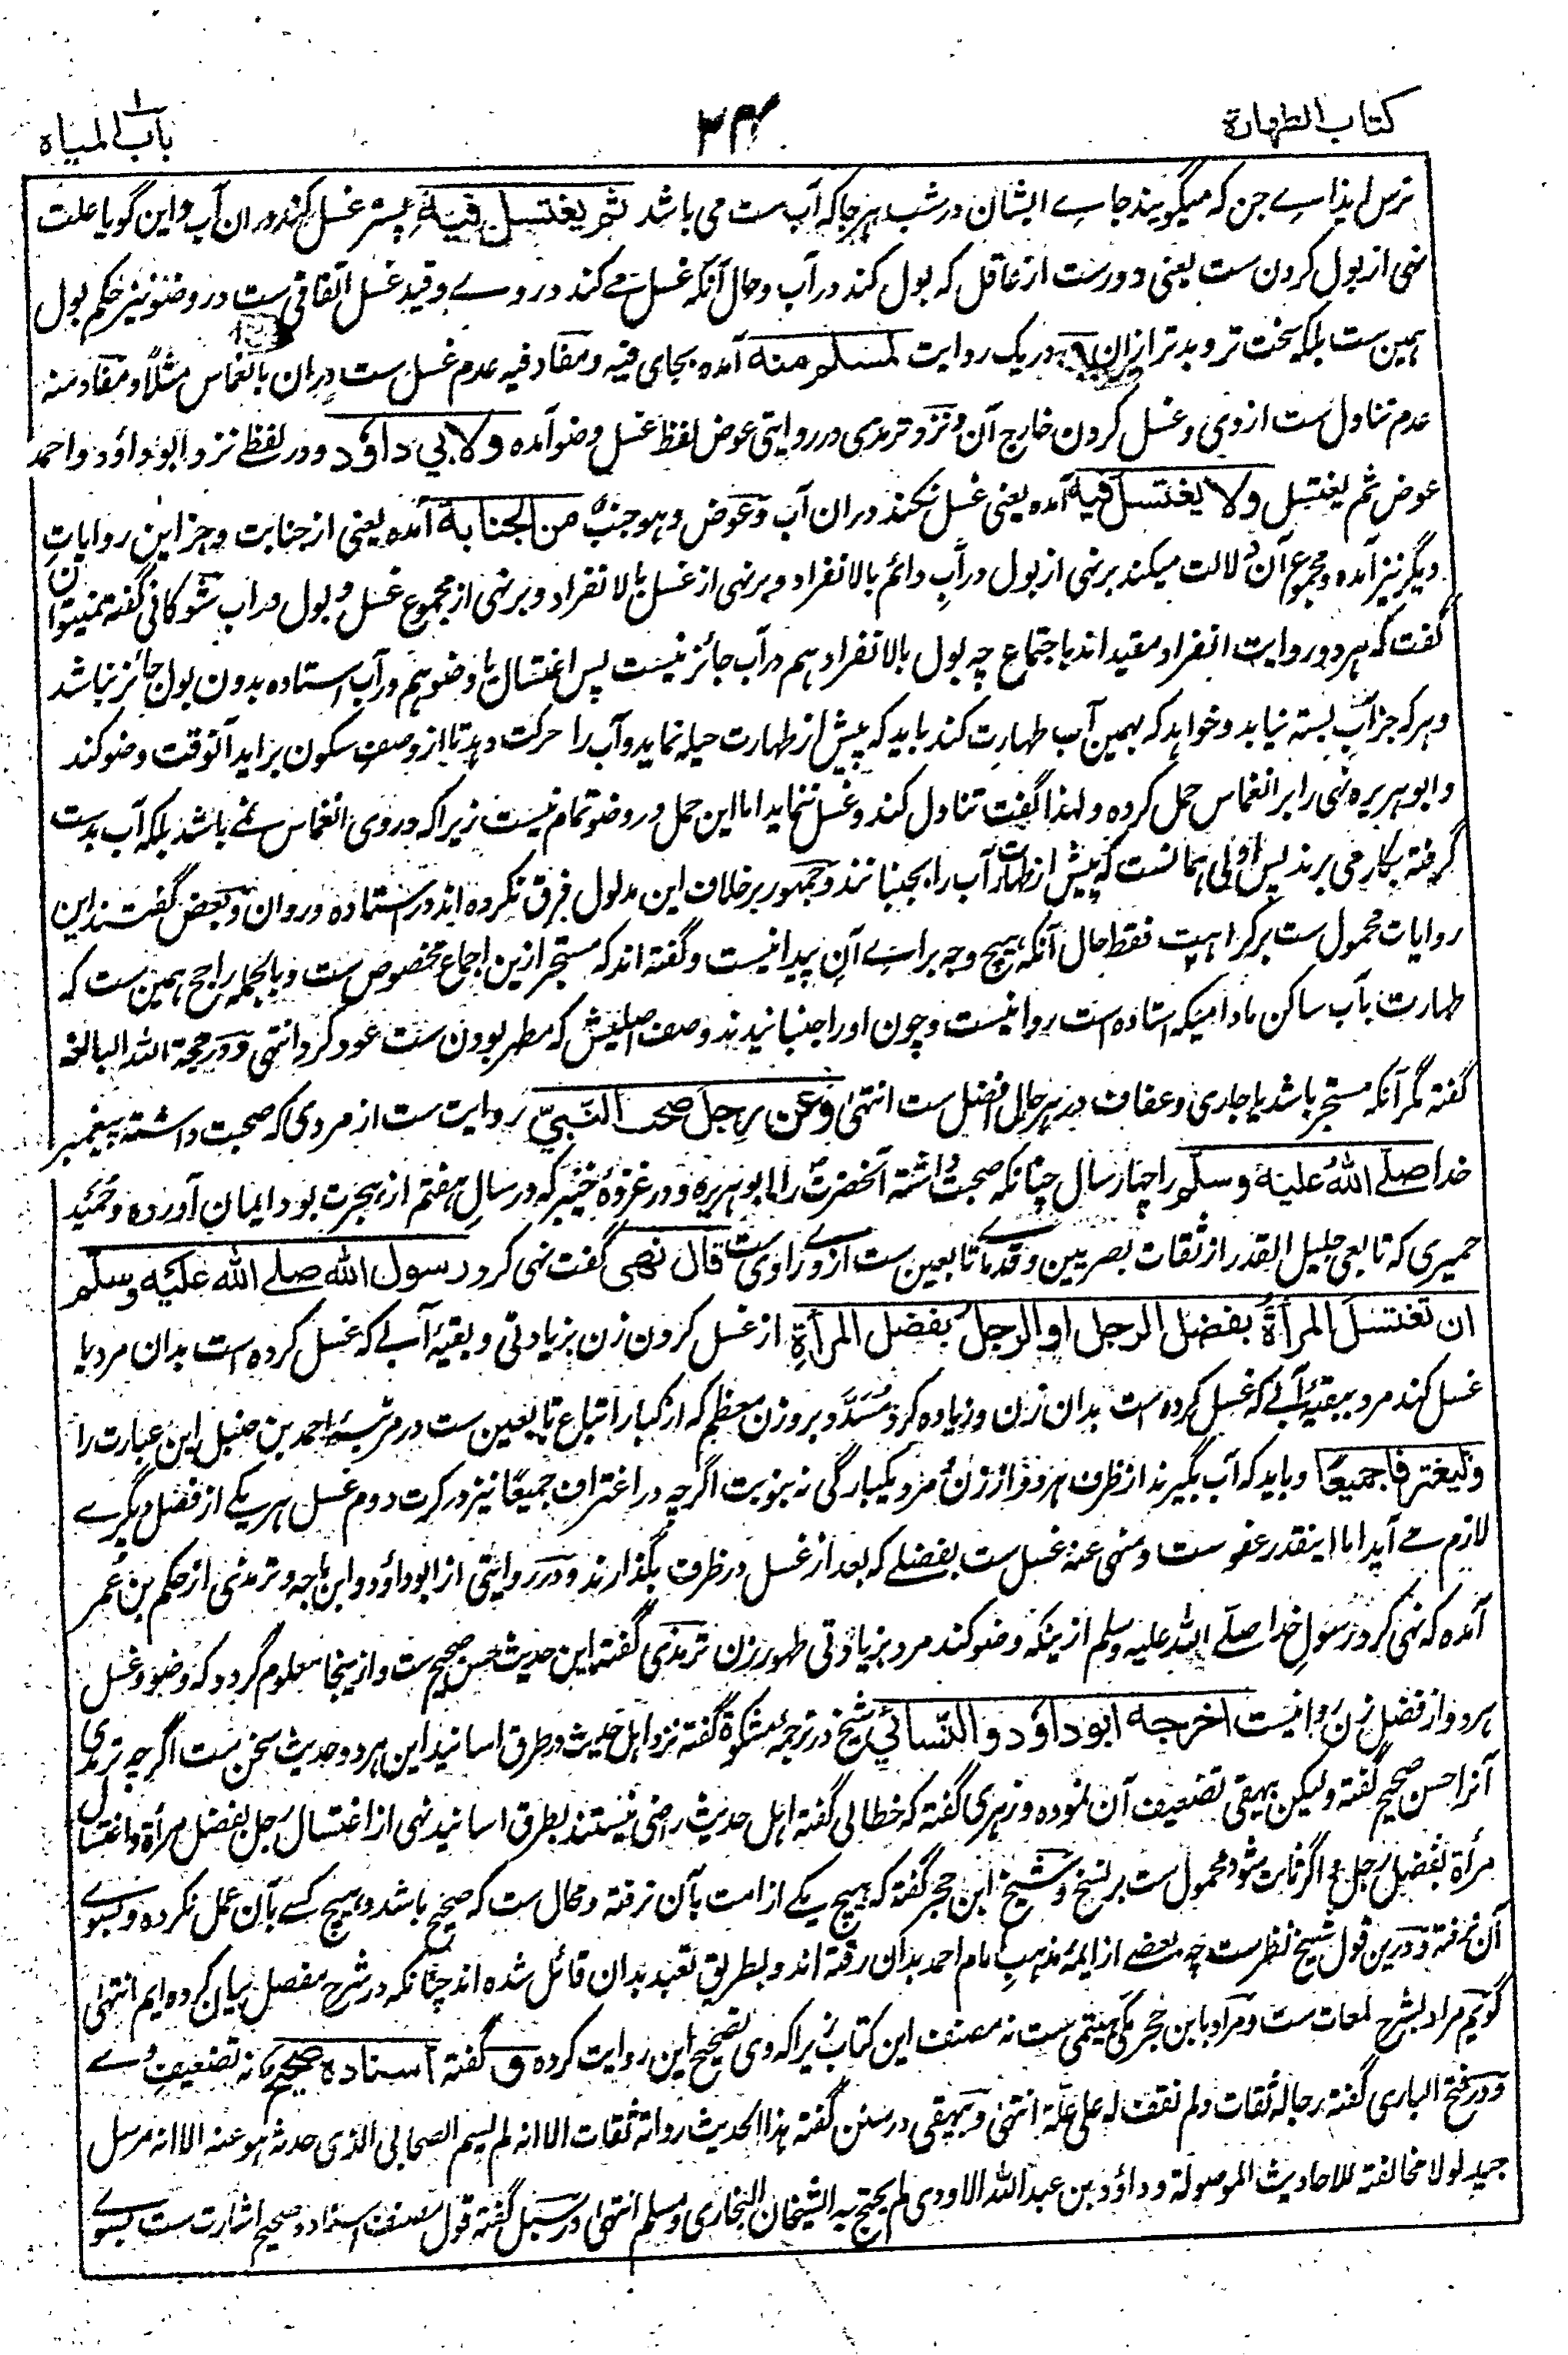 کتاب الطهارة
۳۴
باب المیاه
ترس ایذاے جن که میگویند جاے ایشان در شب ہر جا که آب ست می باشد ثم یغتسل فیه پستر غسل کند در ان آب و این گویا علت
نہی از بول کردن ست یعنی دورست از عاقل که بول کند در آب و حال آنکه غسل مے کند در وے و قید غسل اتفاقی ست در وضو نیز حکم بول
ہمین ست بلکه سخت تر و بدتر ازان و در یک روایت لمسلم منه آمده بجای فیه و مفاد فیه عدم غسل ست دران بانغماس مثلاً و مفاد منه
عدم تناول ست از وی و غسل کردن خارج آن و نزد ترمذی در روایتی عوض لفظ غسل وضو آمده ولابی داؤد و در لفظے نزد ابوداؤد و احمد
عوض ثم یغتسل ولا یغتسل فیه آمده یعنی غسل نکند دران آب و عوض و ہو جنب من الجنابة آمده یعنی از جنابت و جز این روایاتِ
دیگر نیز آمده و مجموع آن دلالت میکند بر نہی از بول در آبِ دائم بالانفراد و بر نہی از غسل بالانفراد و بر نہی از مجموع غسل و بول در آب شوکانی گفته نمیتوان
گفت که ہر دو روایت انفراد مقید اند باجتماع چه بول بالانفراد ہم در آب جائز نیست پس اغتسال یا وضو ہم در آب استاده بدون بول جائز نباشد
و ہر که جز آب بسته نیابد و خواہد که بہمین آب طہارت کند باید که پیش از طہارت حیله نماید و آب را حرکت دہد تا از وصفِ سکون برآید آنوقت وضو کند
و ابوہریره نہی را بر انغماس حمل کرده و لہذا گفت تناول کند و غسل ننماید اما این حمل در وضو تمام نیست زیرا که در وی انغماس نمے باشد بلکه آب بدست
گرفته بکار می برند پس اولی ہمانست که پیش از طہارت آب را بجنبانند و جمہور بر خلاف این مدلول فرق نکرده اند در استاده و روان و بعض گفتند این
روایات محمول ست بر کراہت فقط حال آنکه ہیچ وجه براے آن پیدا نیست و گفته اند که مستبحر ازین اجماع مخصوص ست و بالجمله راجح ہمین ست که
طہارت بآب ساکن مادامیکه استاده است روا نیست و چون او را جنبانیدند وصفِ اصلیش که مطہر بودن ست عود کرد انتہی و در حجة اللہ البالغه
گفته مگر آنکه مستبحر باشد یا جاری و عفاف در ہر حال افضل ست انتہی وعن رجل صحب النبیّ روایت ست از مردی که صحبت داشته پیغمبر
خدا صلے اللہ علیه وسلم را چہار سال چنانکه صحبت داشته آنحضرت را ابوہریره و در غزوهٔ خیبر که در سالِ ہفتم از ہجرت بود ایمان آورده و حُمَید
حمیری که تابعی جلیل القدر از ثقات بصریین و قدماے تابعین ست از وے راوی ست قال نهی گفت نہی کرد رسول اللہ صلے اللہ علیه وسلم
ان تغتسل المرأةُ بفضل الرجل او الرجلُ بفضل المرأةِ از غسل کردن زن بزیادتی و بقیۂ آبے که غسل کرده است بدان مرد یا
غسل کند مرد ببقیۂ آبے که غسل کرده است بدان زن و زیاده کرد مُسَدَّد بر وزن معظم که از کبار اتباع تابعین ست در مرتبۂ احمد بن حنبل این عبارت را
ولیغترفا جمیعًا و باید که آب بگیرند از ظرف ہر دو از زن و مرد یکبارگی نه بنوبت اگرچه در اغتراف جمیعًا نیز در کرت دوم غسل ہر یکے از فضل دیگرے
لازم مے آید اما اینقدر عفو ست و منہی عنه غسل ست بفضلے که بعد از غسل در ظرف بگذارند و در روایتی از ابوداؤد و ابن ماجه و ترمذی از حکم بن عَمر
آمده که نہی کرد رسولِ خدا صلے اللہ علیه وسلم ازینکه وضو کند مرد بزیادتی طہور زن ترمذی گفته این حدیث حسن صحیح ست و ازینجا معلوم گردد که وضو و غسل
ہر دو از فضل زن روا نیست اخرجه ابوداؤد والنسائی شیخ در ترجمۂ مشکوة گفته نزد اہل حدیث در طرق اسانید این ہر دو حدیث سخن ست اگرچه ترمذی
آنرا حسن صحیح گفته و لیکن بیہقی تضعیف آن نموده و زہری گفته که خطابی گفته اہل حدیث راضی نیستند بطرق اسانید نہی از اغتسال رجل بفضل مرأة و اغتسال
مرأة بفضل رجل و اگر ثابت شود محمول ست بر نسخ و شیخ ابن حجر گفته که ہیچ یکے از امت بآن نرفته و محال ست که صحیح باشد و ہیچ کسے بآن عمل نکرده و بسوے
آن نرفته و درین قول شیخ نظر ست چه بعضے از ایمۂ مذہبِ امام احمد بدان رفته اند و بطریق تعبد بدان قائل شده اند چنانکه در شرح مفصل بیان کرده ایم انتہی
گویم مراد بشرح لمعات ست و مراد بابن حجر مکی ہیتمی ست نه مصنف این کتاب زیرا که وی تصحیح این روایت کرده و گفته اسناده صحیح نه تضعیفِ وے
و در فتح الباری گفته رجاله ثقات و لم نقف له علی علّة انتہی و بیہقی در سنن گفته ہذا الحدیث رواته ثقات الا انه لم یسم الصحابی الذی حدثه ہو عنه الا انه مرسل
جید لولا مخالفته للاحادیث الموصولة و داؤد بن عبداللہ الاودی لم یحتج به الشیخان البخاری و مسلم انتہی در سبل گفته قول مصنف اسناده صحیح اشارت ست بسوے